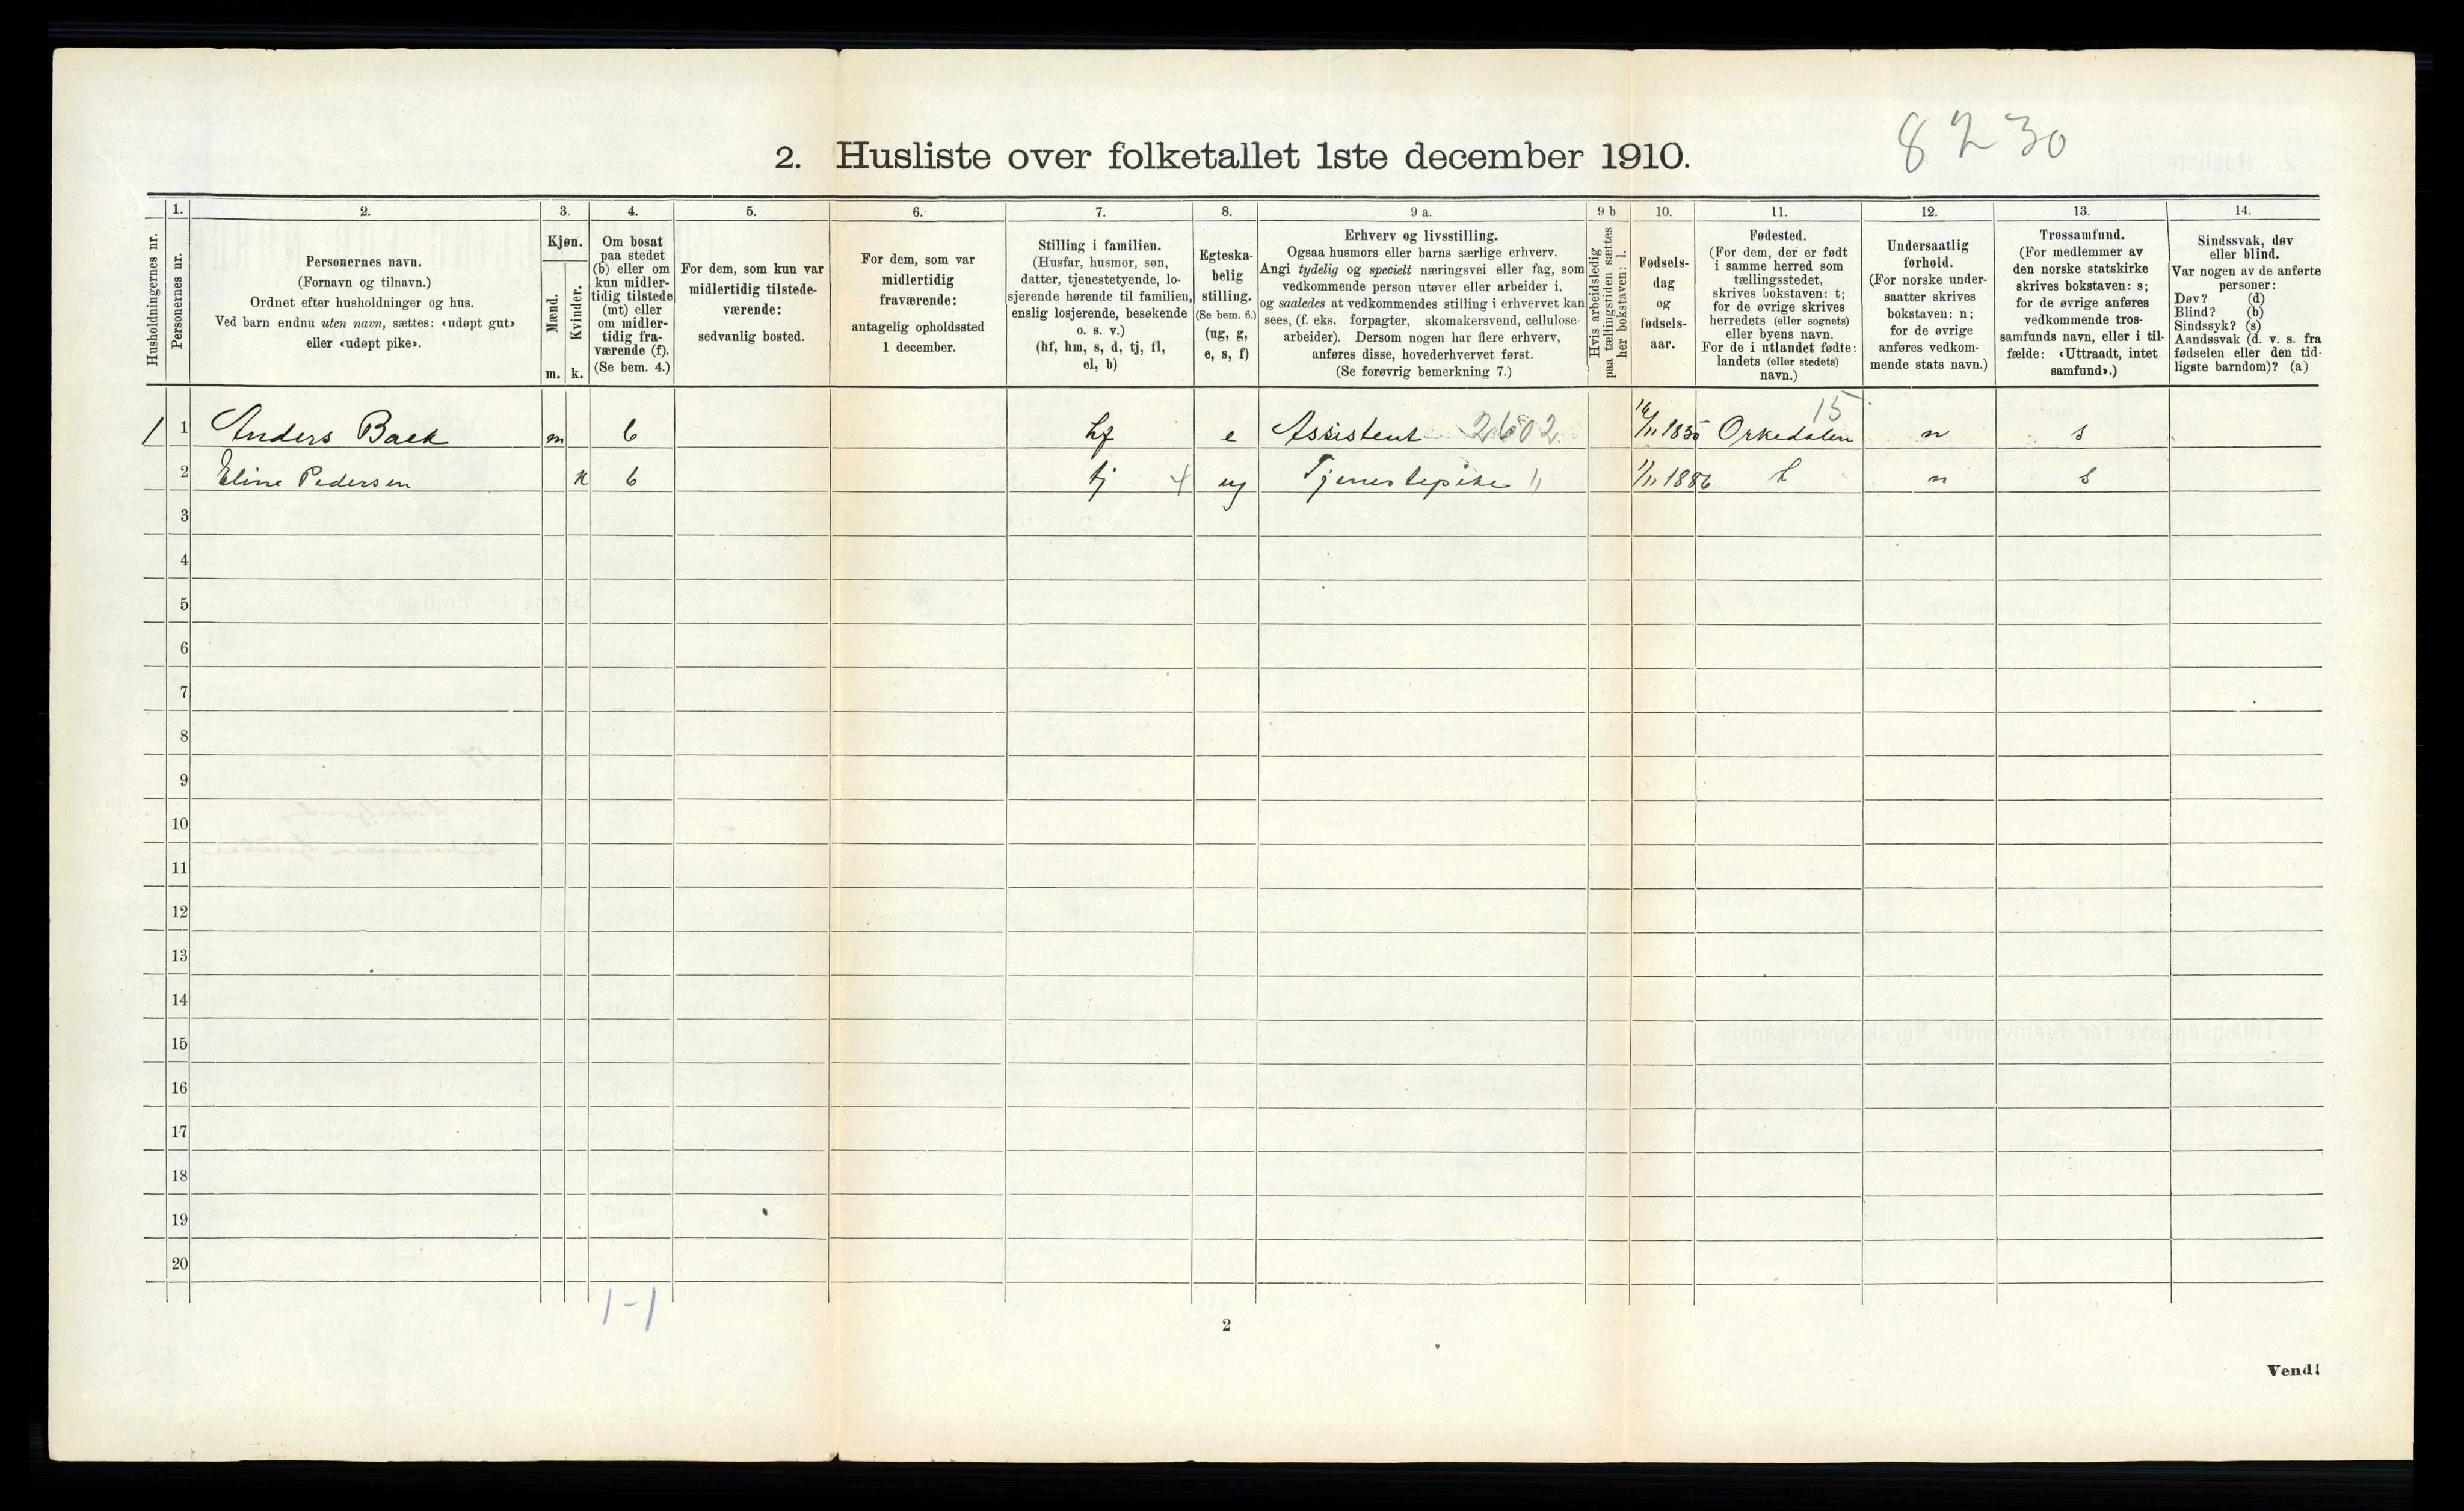 8230
2. Husliste over folketallet 1ste december 1910.
Husholdningernes nr.
1.
Personernes nr.
2.
Personernes navn.
(Fornavn og tilnavn.)
Ordnet efter husholdninger og hus.
Ved barn endnu uten navn, sættes: «udøpt gut»
eller «udøpt pike».
3.
Kjøn.
Mænd.
Kvinder.
m. k.
4.
Om bosat
paa stedet
(b) eller om
kun midler-
tidig tilstede
(mt) eller
om midler-
tidig fra-
værende (f).
(Se bem. 4.)
5.
For dem, som kun var
midlertidig tilstede-
værende:
sedvanlig bosted.
6.
For dem, som var
midlertidig
fraværende:
antagelig opholdssted
1 december.
7.
Stilling i familien.
(Husfar, husmor, søn,
datter, tjenestetyende, lo-
sjerende hørende til familien,
enslig losjerende, besøkende
o. s. v.)
(hf, hm, s, d, tj, fl,
el, b)
8.
Egteska-
belig
stilling.
(Se bem. 6.)
(ug, g,
e, s, f)
9 a.
Erhverv og livsstilling.
Ogsaa husmors eller barns særlige erhverv.
Angi tydelig og specielt næringsvei eller fag, som
vedkommende person utøver eller arbeider i,
og saaledes at vedkommendes stilling i erhvervet kan
sees, (f. eks. forpagter, skomakersvend, cellulose-
arbeider). Dersom nogen har flere erhverv,
anføres disse, hovederhvervet først.
(Se forøvrig bemerkning 7.)
9 b
Hvis arbeidsledig
paa tællingstiden sættes
her bokstaven: l.
10.
Fødsels-
dag
og
fødsels-
aar.
11.
Fødested.
(For dem, der er født
i samme herred som
tællingsstedet,
skrives bokstaven: t;
for de øvrige skrives
herredets (eller sognets)
eller byens navn.
For de i utlandet fødte:
landets (eller stedets)
navn.)
12.
Undersaatlig
forhold.
(For norske under-
saatter skrives
bokstaven: n;
for de øvrige
anføres vedkom-
mende stats navn.)
13.
Trossamfund.
(For medlemmer av
den norske statskirke
skrives bokstaven: s;
for de øvrige anføres
vedkommende tros-
samfunds navn, eller i til-
fælde: «Uttraadt, intet
samfund».)
14.
Sindssvak, døv
eller blind.
Var nogen av de anførte
personer:
Døv? (d)
Blind? (b)
Sindssyk? (s)
Aandssvak (d. v. s. fra
fødselen eller den tid-
ligste barndom)? (a)
15
1 1 Anders Baek m b hf e Assistent 2602 Orkedalen n s
2 Eline Pedersen k b tj ug Tjenestepike 1/11 1886 t n s
3
4
5
6
7
8
9
10
11
12
13
14
15
16
17
18
19
20
1-1
2
Vend!